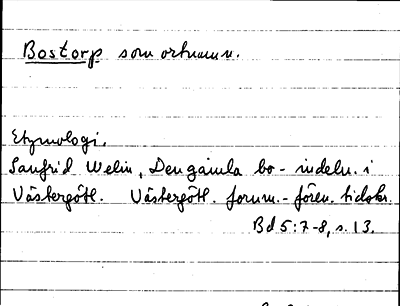 Bostorp som ortnamn.
Etymologi.
Sanfrid Welin, Den gamla bo-indeln. i
Västergötl. Västergötl. fornm.-fören. tidskr.
Bd 5:7-8, s. 13.